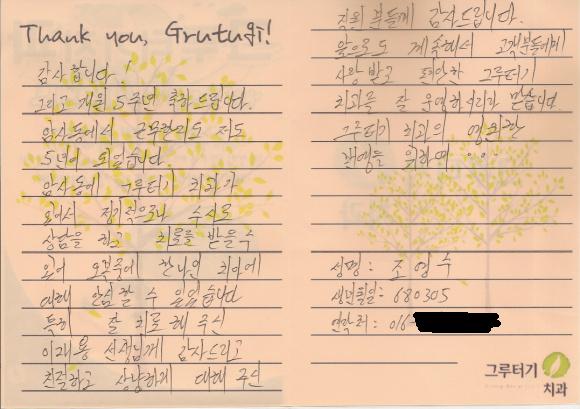 Thank you, Grutugi!
감사합니다!
그리고 개원 5주년 축하드립니다.
암사동에서 근무한지도 저도
5년이 되었습니다.
암사동에 그루터기 치과가
있어서 정기적으로나 수시로
상담을 하고 치료를 받을 수
있어 오복중에 하나인 치아에
대해 안심할 수 있었습니다
특히 잘 치료해 주신
이재용 선생님께 감사드리고
친절하고 상냥하게 대해 주신
직원 분들께 감사드립니다.
앞으로도 계속해서 고객분들에게
사랑받고 편안한 그루터기
치과를 잘 운영하시리라 믿습니다.
그루터기 치과의 영원한
발전을 위하여 ...
성명: 조영수
생년월일: 680305
연락처: 016-
그루터기
치과